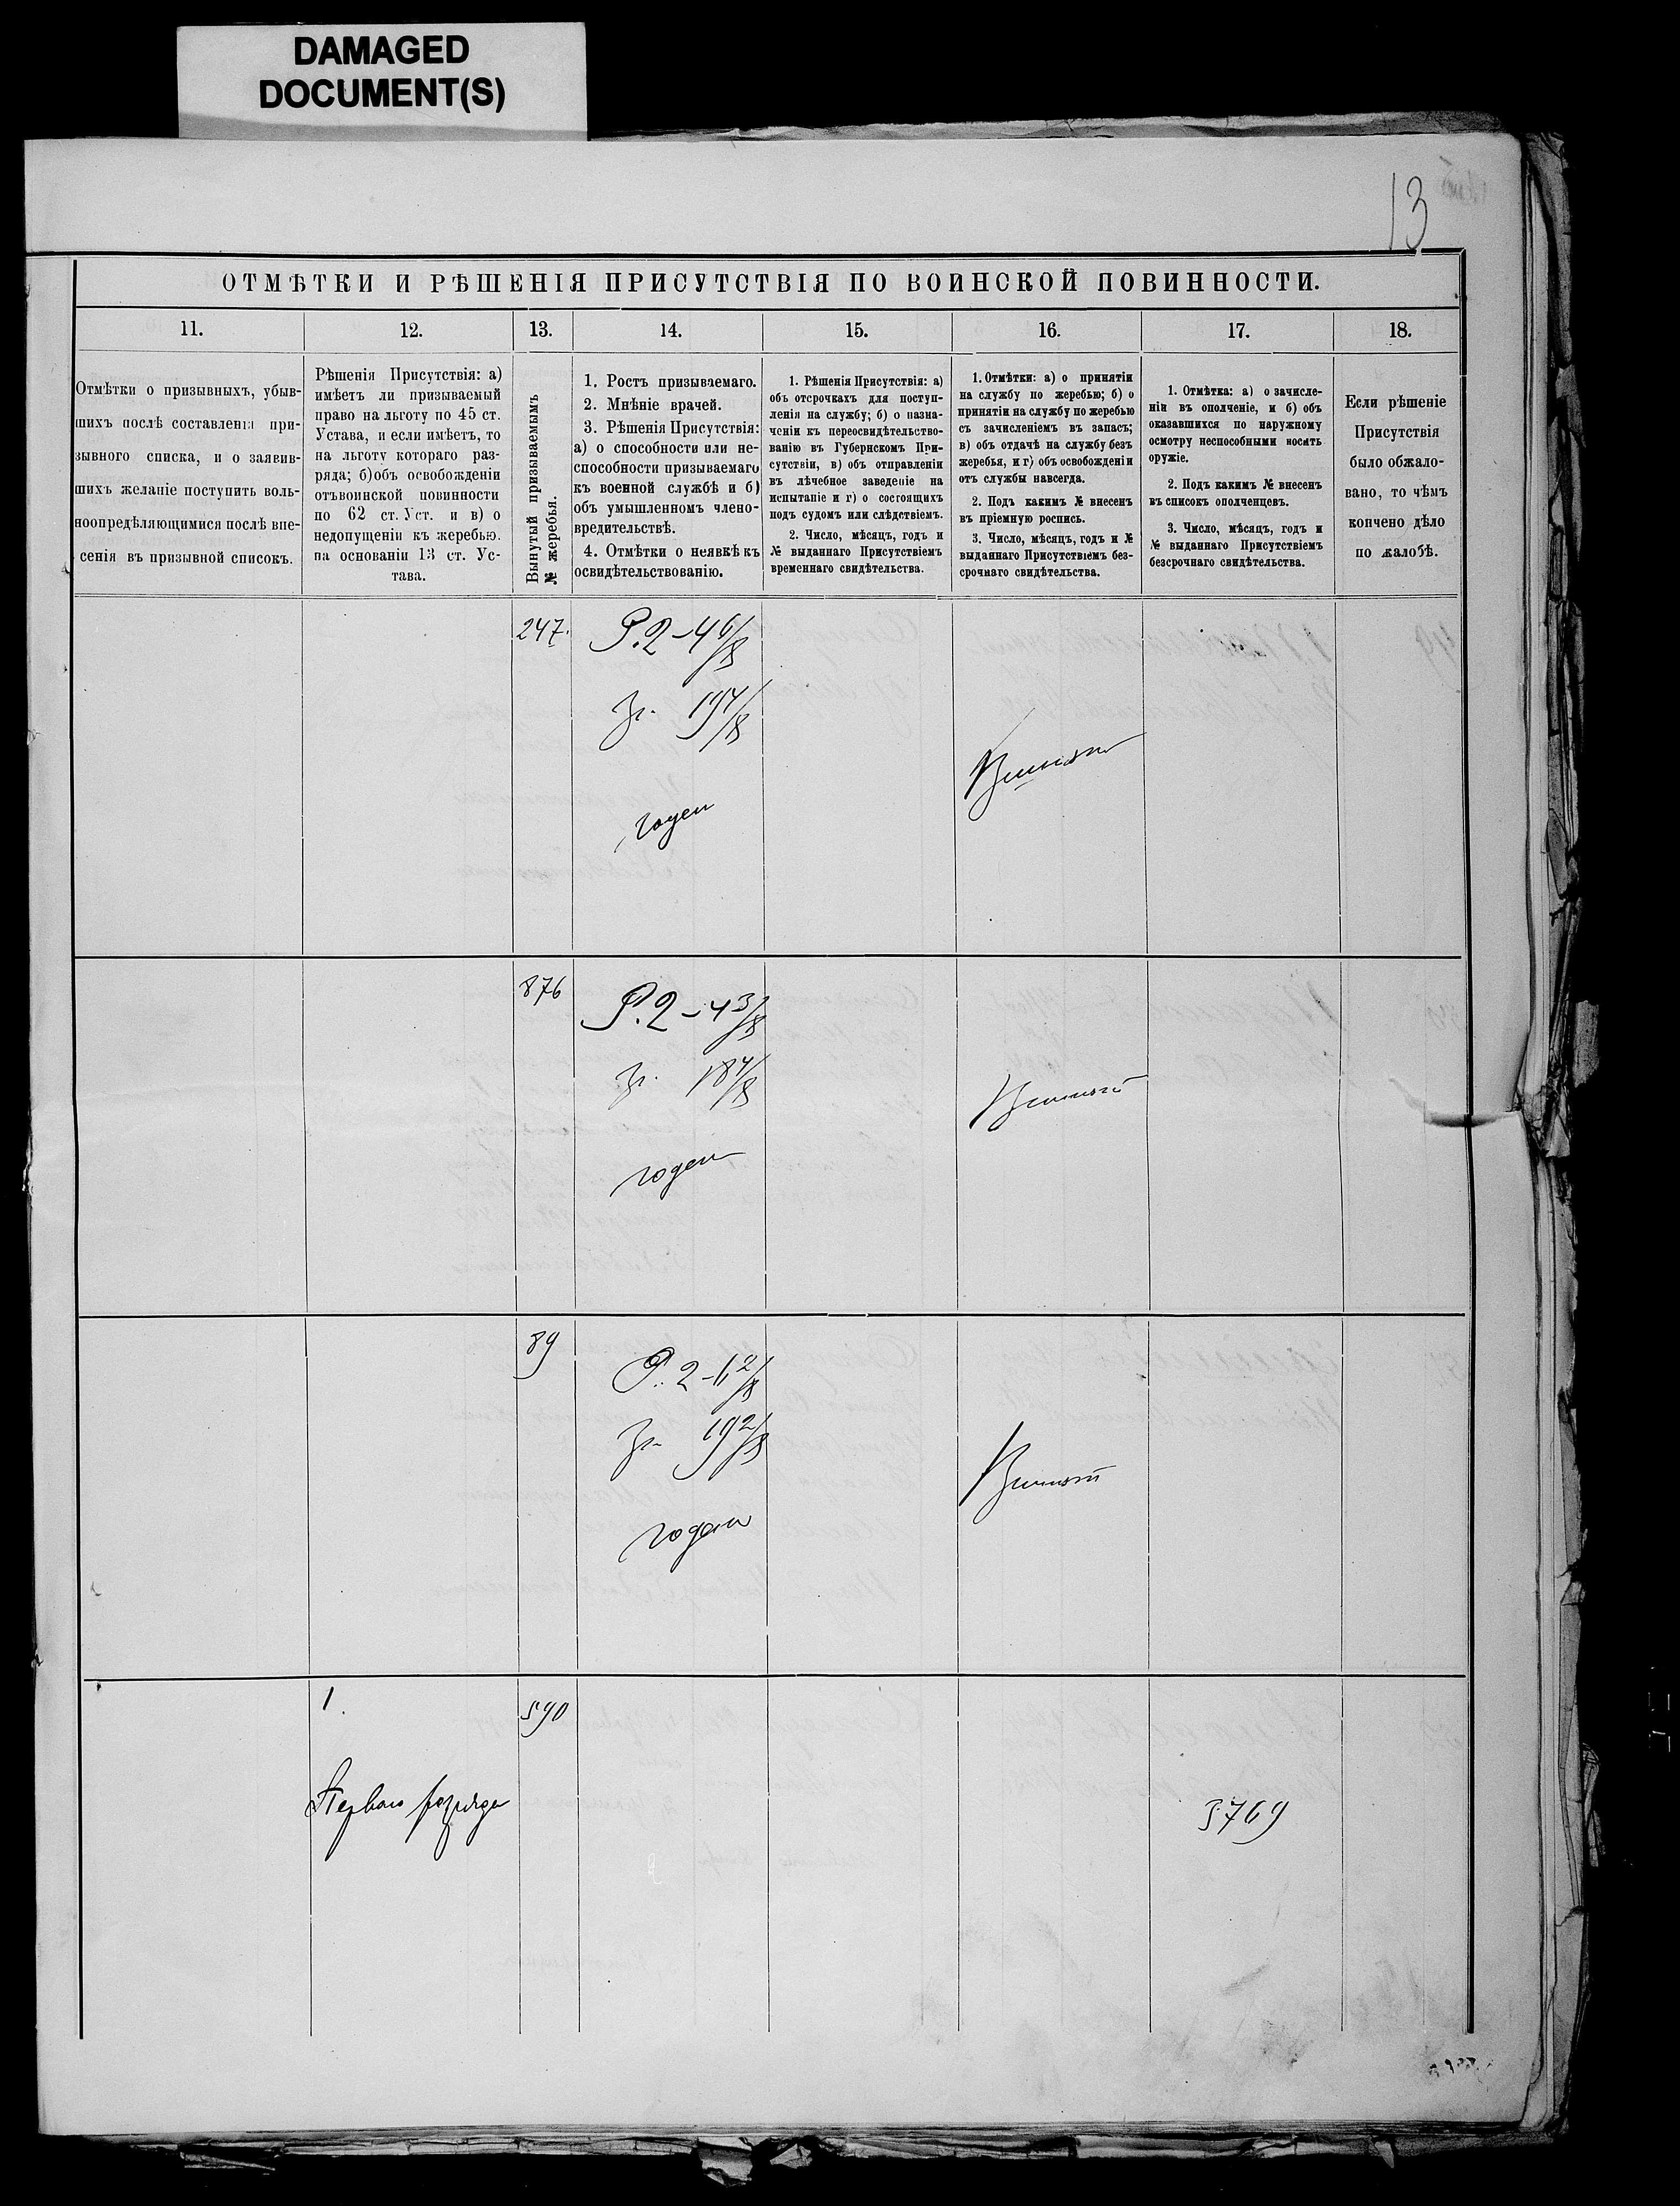 DAMAGED
DOCUMENT(S)
13
ОТМѢТКИ И РѢШЕНІЯ ПРИСУТСТВІЯ ПО ВОИНСКОЙ ПОВИННОСТИ.
11.
12.
13.
14.
15.
16.
17.
18.
Отмѣтки о призывныхъ, убыв-
шихъ послѣ составленія при-
зывного списка, и о заявив-
шихъ желаніе поступить воль-
ноопредѣляющимися послѣ вне-
сенія въ призывной списокъ.
Рѣшенія Присутствія: а)
имѣетъ ли призываемый
право на льготу по 45 ст.
Устава, и если имѣетъ, то
на льготу котораго раз-
ряда; б) объ освобожденіи
отъ воинской повинности
по 62 ст. Уст. и в) о
недопущеніи къ жеребью.
на основаніи 13 ст. Ус-
тава.
Вынутый призываемымъ
№ жеребья.
1. Ростъ призываемаго.
2. Мнѣніе врачей.
3. Рѣшенія Присутствія:
а) о способности или не-
способности призываемаго
къ военной службѣ и б)
объ умышленномъ члено-
вредительствѣ.
4. Отмѣтки о неявкѣ къ
освидѣтельствованію.
1. Рѣшенія Присутствія: а)
объ отсрочкахъ для поступ-
ленія на службу; б) о назна-
ченіи къ переосвидѣтельство-
ванію въ Губернскомъ При-
сутствіи, в) объ отправленіи
въ лѣчебное заведеніе на
испытаніе и г) о состоящихъ
подъ судомъ или слѣдствіемъ.
2. Число, мѣсяцъ, годъ и
№ выданнаго Присутствіемъ
временнаго свидѣтельства.
1. Отмѣтки: а) о принятіи
на службу по жеребью; б) о
принятіи на службу по жеребью
съ зачисленіемъ въ запасъ;
в) объ отдачѣ на службу безъ
жеребья, и г) объ освобожденіи
отъ службы навсегда.
2. Подъ какимъ № внесенъ
въ пріемную роспись.
3. Число, мѣсяцъ, годъ и №
выданнаго Присутствіемъ без-
срочнаго свидѣтельства.
1. Отмѣтка: а) о зачисле-
ніи въ ополченіе, и б) объ
оказавшихся по наружному
осмотру неспособными носить
оружіе.
2. Подъ какимъ № внесенъ
въ списокъ ополченцевъ.
3. Число, мѣсяцъ, годъ и
№ выданнаго Присутствіемъ
безсрочнаго свидѣтельства.
Если рѣшеніе
Присутствія
было обжало-
вано, то чѣмъ
кончено дѣло
по жалобѣ.
247.
Р. 2 – 4 6/8
Гр. 19 4/8
годен
Принят
876
Р. 2 – 4 3/8
Гр. 18 4/8
годен
Принят
89
Р. 2 – 6 2/8
Гр. 19 2/8
годен
Принят
1.
Перваго разряда
590
3769